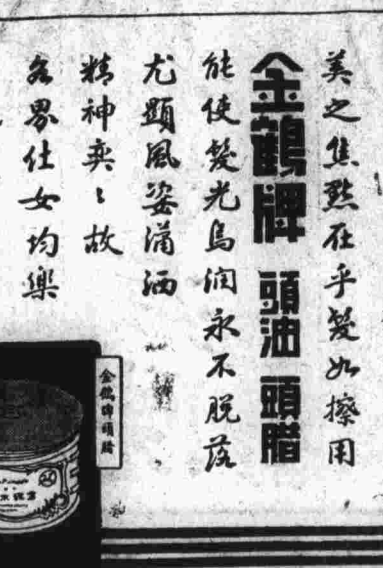 美之焦點在乎髮如擦用
金鶴牌 頭油 頭腊
能使髮光烏润永不脱落
尤顯風姿瀟洒
精神奕〻故
各界仕女均樂
金鶴牌頭腊